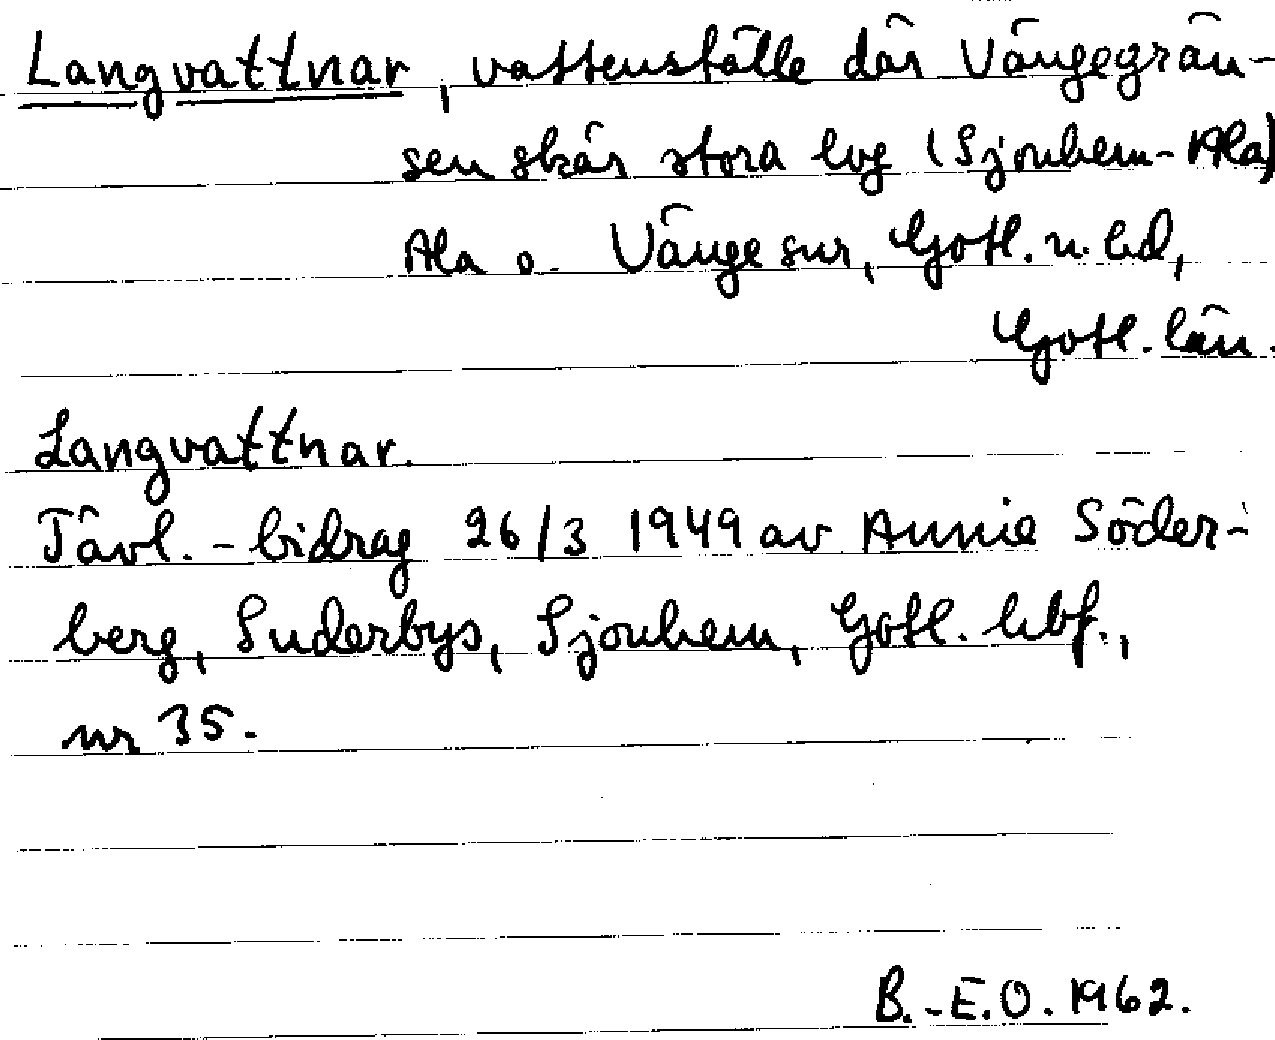 Langvattnar, vattenställe där Vängegrän-
sen skär stora vg (Sjonhem-Ala)
Ala o. Vänge snr, Gotl. n. hd,
Gotl. län.
Langvattnar.
Tävl.-bidrag 26/3 1949 av Annie Söder-
berg, Suderbys, Sjonhem, Gotl. hbf.,
nr 35.
B.-E.O. 1962.